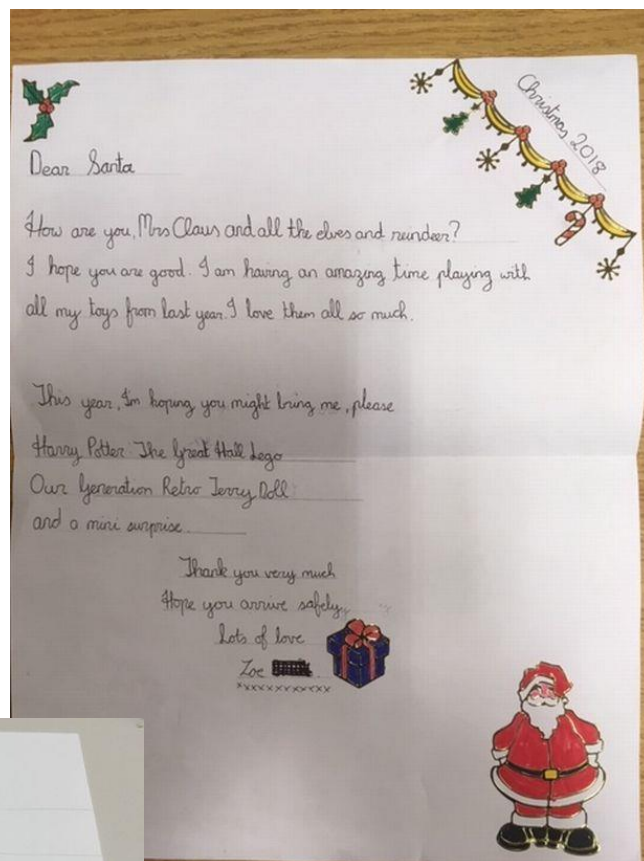 Christmas 2018
Dear Santa
How are you, Mrs Claus and all the elves and reindeer?
I hope you are good. I am having an amazing time playing with
all my toys from last year. I love them all so much.
This year, I'm hoping you might bring me, please
Harry Potter The Great Hall Lego
Our Generation Retro Terry Doll
and a mini surprise
Thank you very much
Hope you arrive safely
Lots of love
Zoe
xxxxxxxxxxxx